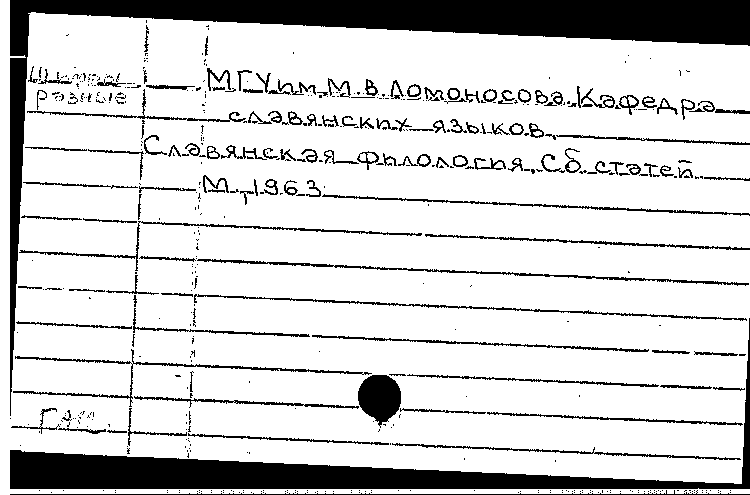 Шифры
разные
МГУ им. М. В. Ломоносова. Кафедра
славянских языков.
Славянская филология. Сб. статей
М., 1963